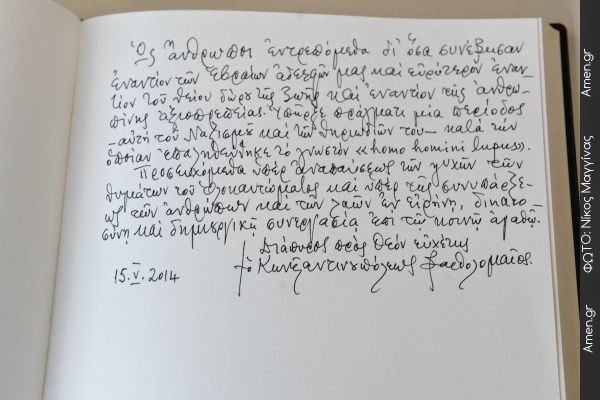 Ὡς ἄνθρωποι ἐντρεπόμεθα δι᾽ ὅσα συνέβησαν
ἐναντίον τῶν Ἑβραίων ἀδελφῶν μας καί εὐρύτερον ἐναν-
τίον τοῦ θείου δώρου τῆς ζωῆς καί ἐναντίον τῆς ἀνθρω-
πίνης ἀξιοπρεπείας. Ὑπῆρξε πράγματι μία περίοδος
-αὐτή τοῦ Ναζισμοῦ καί τῶν θηριωδιῶν του- κατά τήν
ὁποίαν ἐπαληθεύθηκε τό γνωστόν «homo homini lupus».
Προσευχόμεθα ὑπέρ ἀναπαύσεως τῶν ψυχῶν τῶν
θυμάτων τοῦ ὁλοκαυτώματος καί ὑπέρ τῆς συνυπάρξε-
ως τῶν ἀνθρώπων καί τῶν λαῶν ἐν εἰρήνῃ, δικαιο-
σύνῃ καί δημιουργικῇ συνεργασίᾳ ἐπί τῷ κοινῷ ἀγαθῷ.
Διάπυρος πρός Θεόν εὐχέτης
15.V.2014 † ὁ Κωνσταντινουπόλεως Βαρθολομαῖος.
Amen.gr ΦΩΤΟ: Νίκος Μαγγίνας Amen.gr